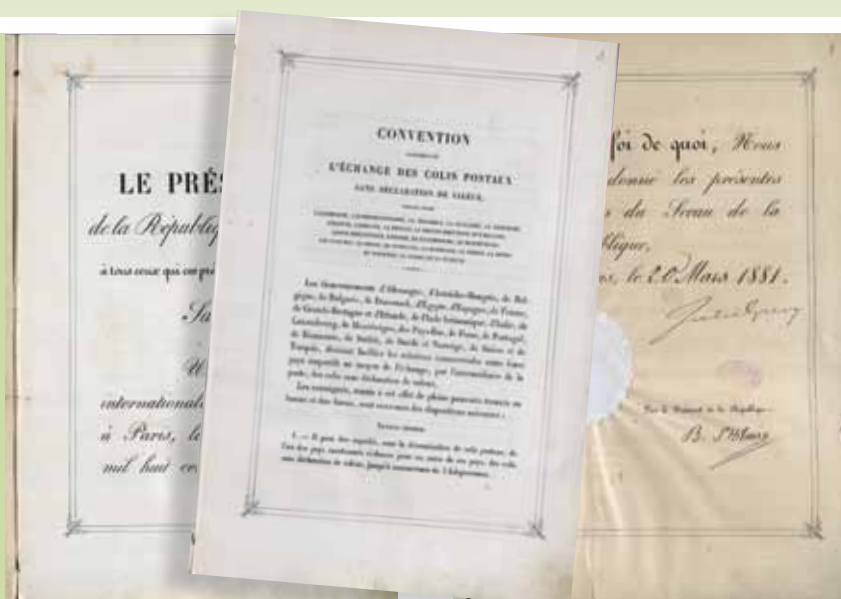 LE PRÉS
de la Républiq
à tous ceux qui ces pré
Sa
U
internationale
à Paris, le
mil huit ce
CONVENTION
L'ÉCHANGE DES COLIS POSTAUX
SANS DÉCLARATION DE VALEUR,
L'ALLEMAGNE, L'AUTRICHE-HONGRIE, LA BELGIQUE, LA BULGARIE, LE DANEMARK,
LES PAYS-BAS, LA PERSE, LE PORTUGAL, LA ROUMANIE, LA SERBIE, LA SUÈDE
ET NORVÈGE, LA SUISSE ET LA TURQUIE
Les Gouvernements d'Allemagne, d'Autriche-Hongrie, de Bel-
gique, de Bulgarie, de Danemark, d'Égypte, d'Espagne, de France,
de Grande-Bretagne et d'Irlande, de l'Inde britannique, d'Italie, de
Luxembourg, de Monténégro, des Pays-Bas, de Perse, de Portugal,
de Roumanie, de Serbie, de Suède et Norvège, de Suisse et de
Turquie, désirant faciliter les relations commerciales entre leurs
pays respectifs au moyen de l'échange, par l'intermédiaire de la
poste, des colis sans déclaration de valeur,
Les soussignés, munis à cet effet de pleins pouvoirs trouvés en
bonne et due forme, sont convenus des dispositions suivantes :
1. — Il peut être expédié, sous la dénomination de colis postaux, de
l'un des pays mentionnés ci-dessus pour un autre de ces pays, des colis
sans déclaration de valeur, jusqu'à concurrence de 3 kilogrammes.
foi de quoi, Nous
donné les présentes
du Sceau de la
blique.
is, le 20 Mars 1881.
Jules Grévy
Par le Président de la République
B. St Hilaire